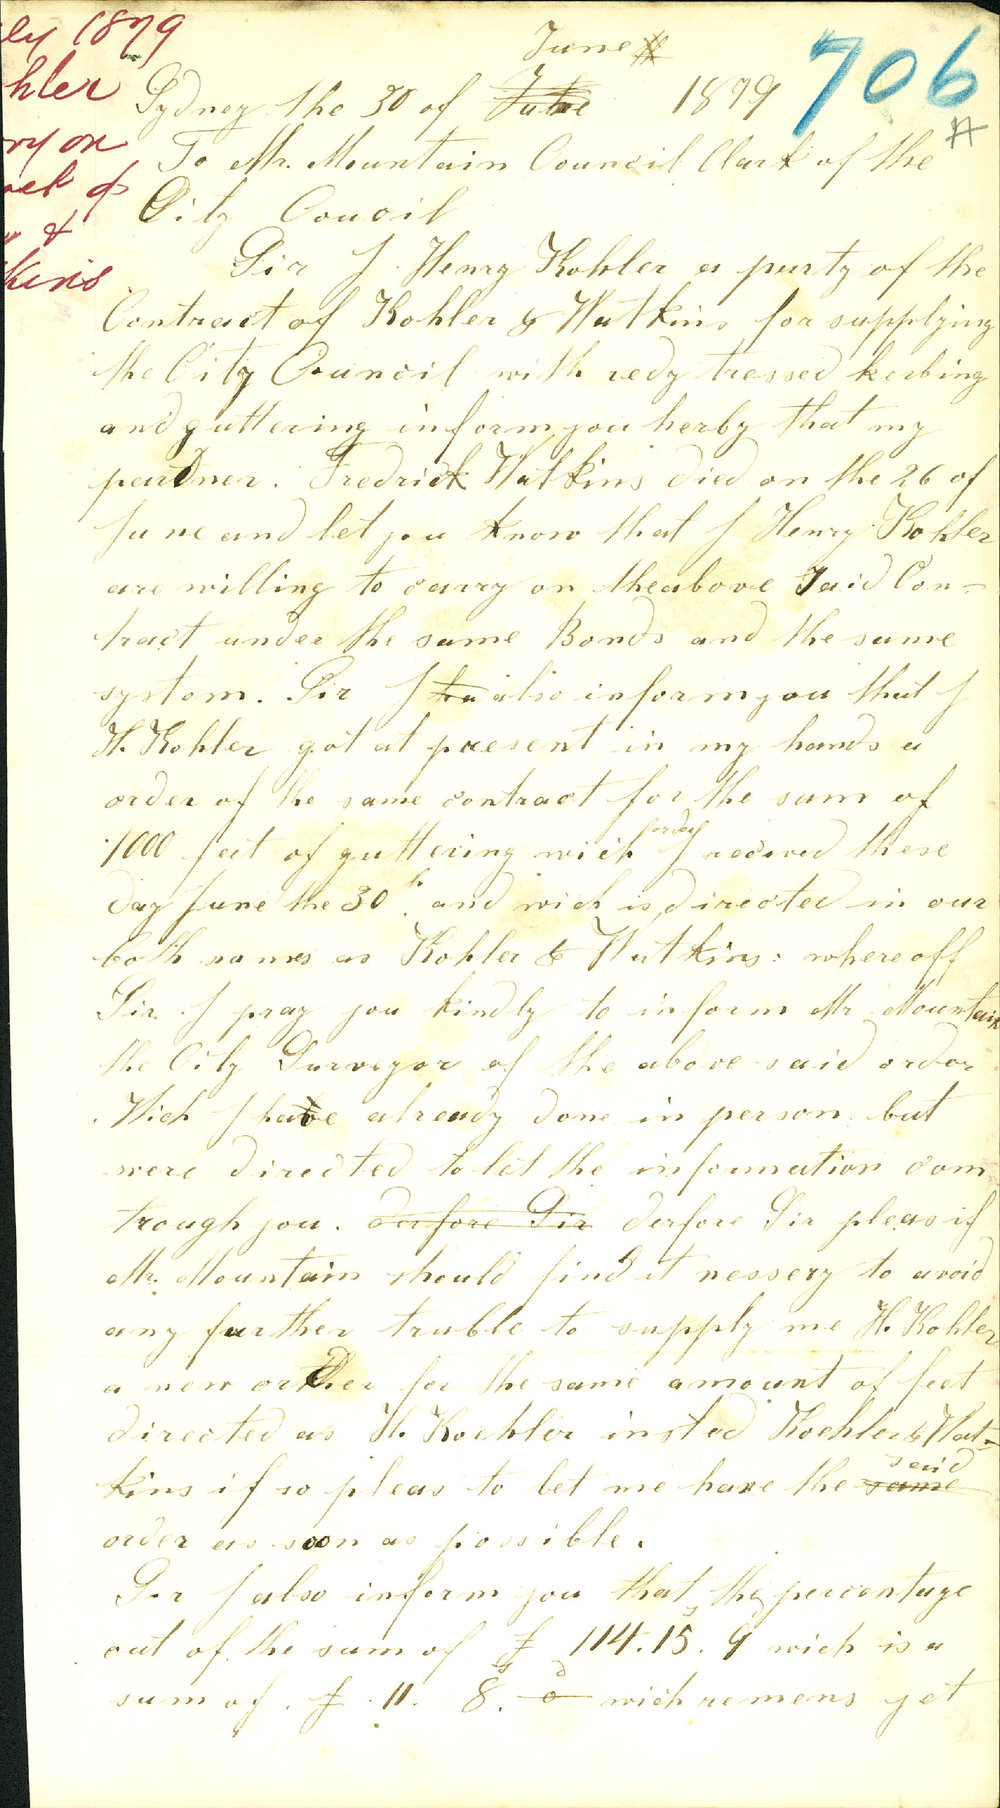 ly 1879
hler
ry on
act of
&
kins
706
June
Sydney the 30 of June 1879
To Mr. Mountain Council Clark of the
City Coucil
Sir I Henry Kohler a party of the
Contract of Kohler & Watkins for supplying
the City Council with redy tressed kerbing
and guttering inform you herby that my
pardner. Fredrick Watkins died on the 26 of
June and let you know that I Henry Kohler
are willing to carry on the above Said Con-
tract under the same Bonds and the same
system. Sir I also inform you that I
H. Kohler got at present in my hands a
order of the same contract for the sum of
1000 feet of guttering wich I recived these
day June the 30th. and wich is directed in our
both names as Kohler & Watkins: whereoff
Sir. I pray you kindly to inform Mr Mountain
the City Surveyor of the above said order
Wich I have already done in person. but
were directed to let the information com
trough you. derfore Sir derfore Sir pleas if
Mr. Mountain should find it nessery to avoid
any further truble to supply me H. Kohler
a new order for the same amount of feet
directed as H. Koehler insted Koehler & Wat-
kins if so pleas to let me have the same said
order as soon as possible.
Sir I also inform you that the percentage
out of the sum of £ 114. 15. 9 wich is a
sum of. £. 11. 8s. 0d wich remens yet